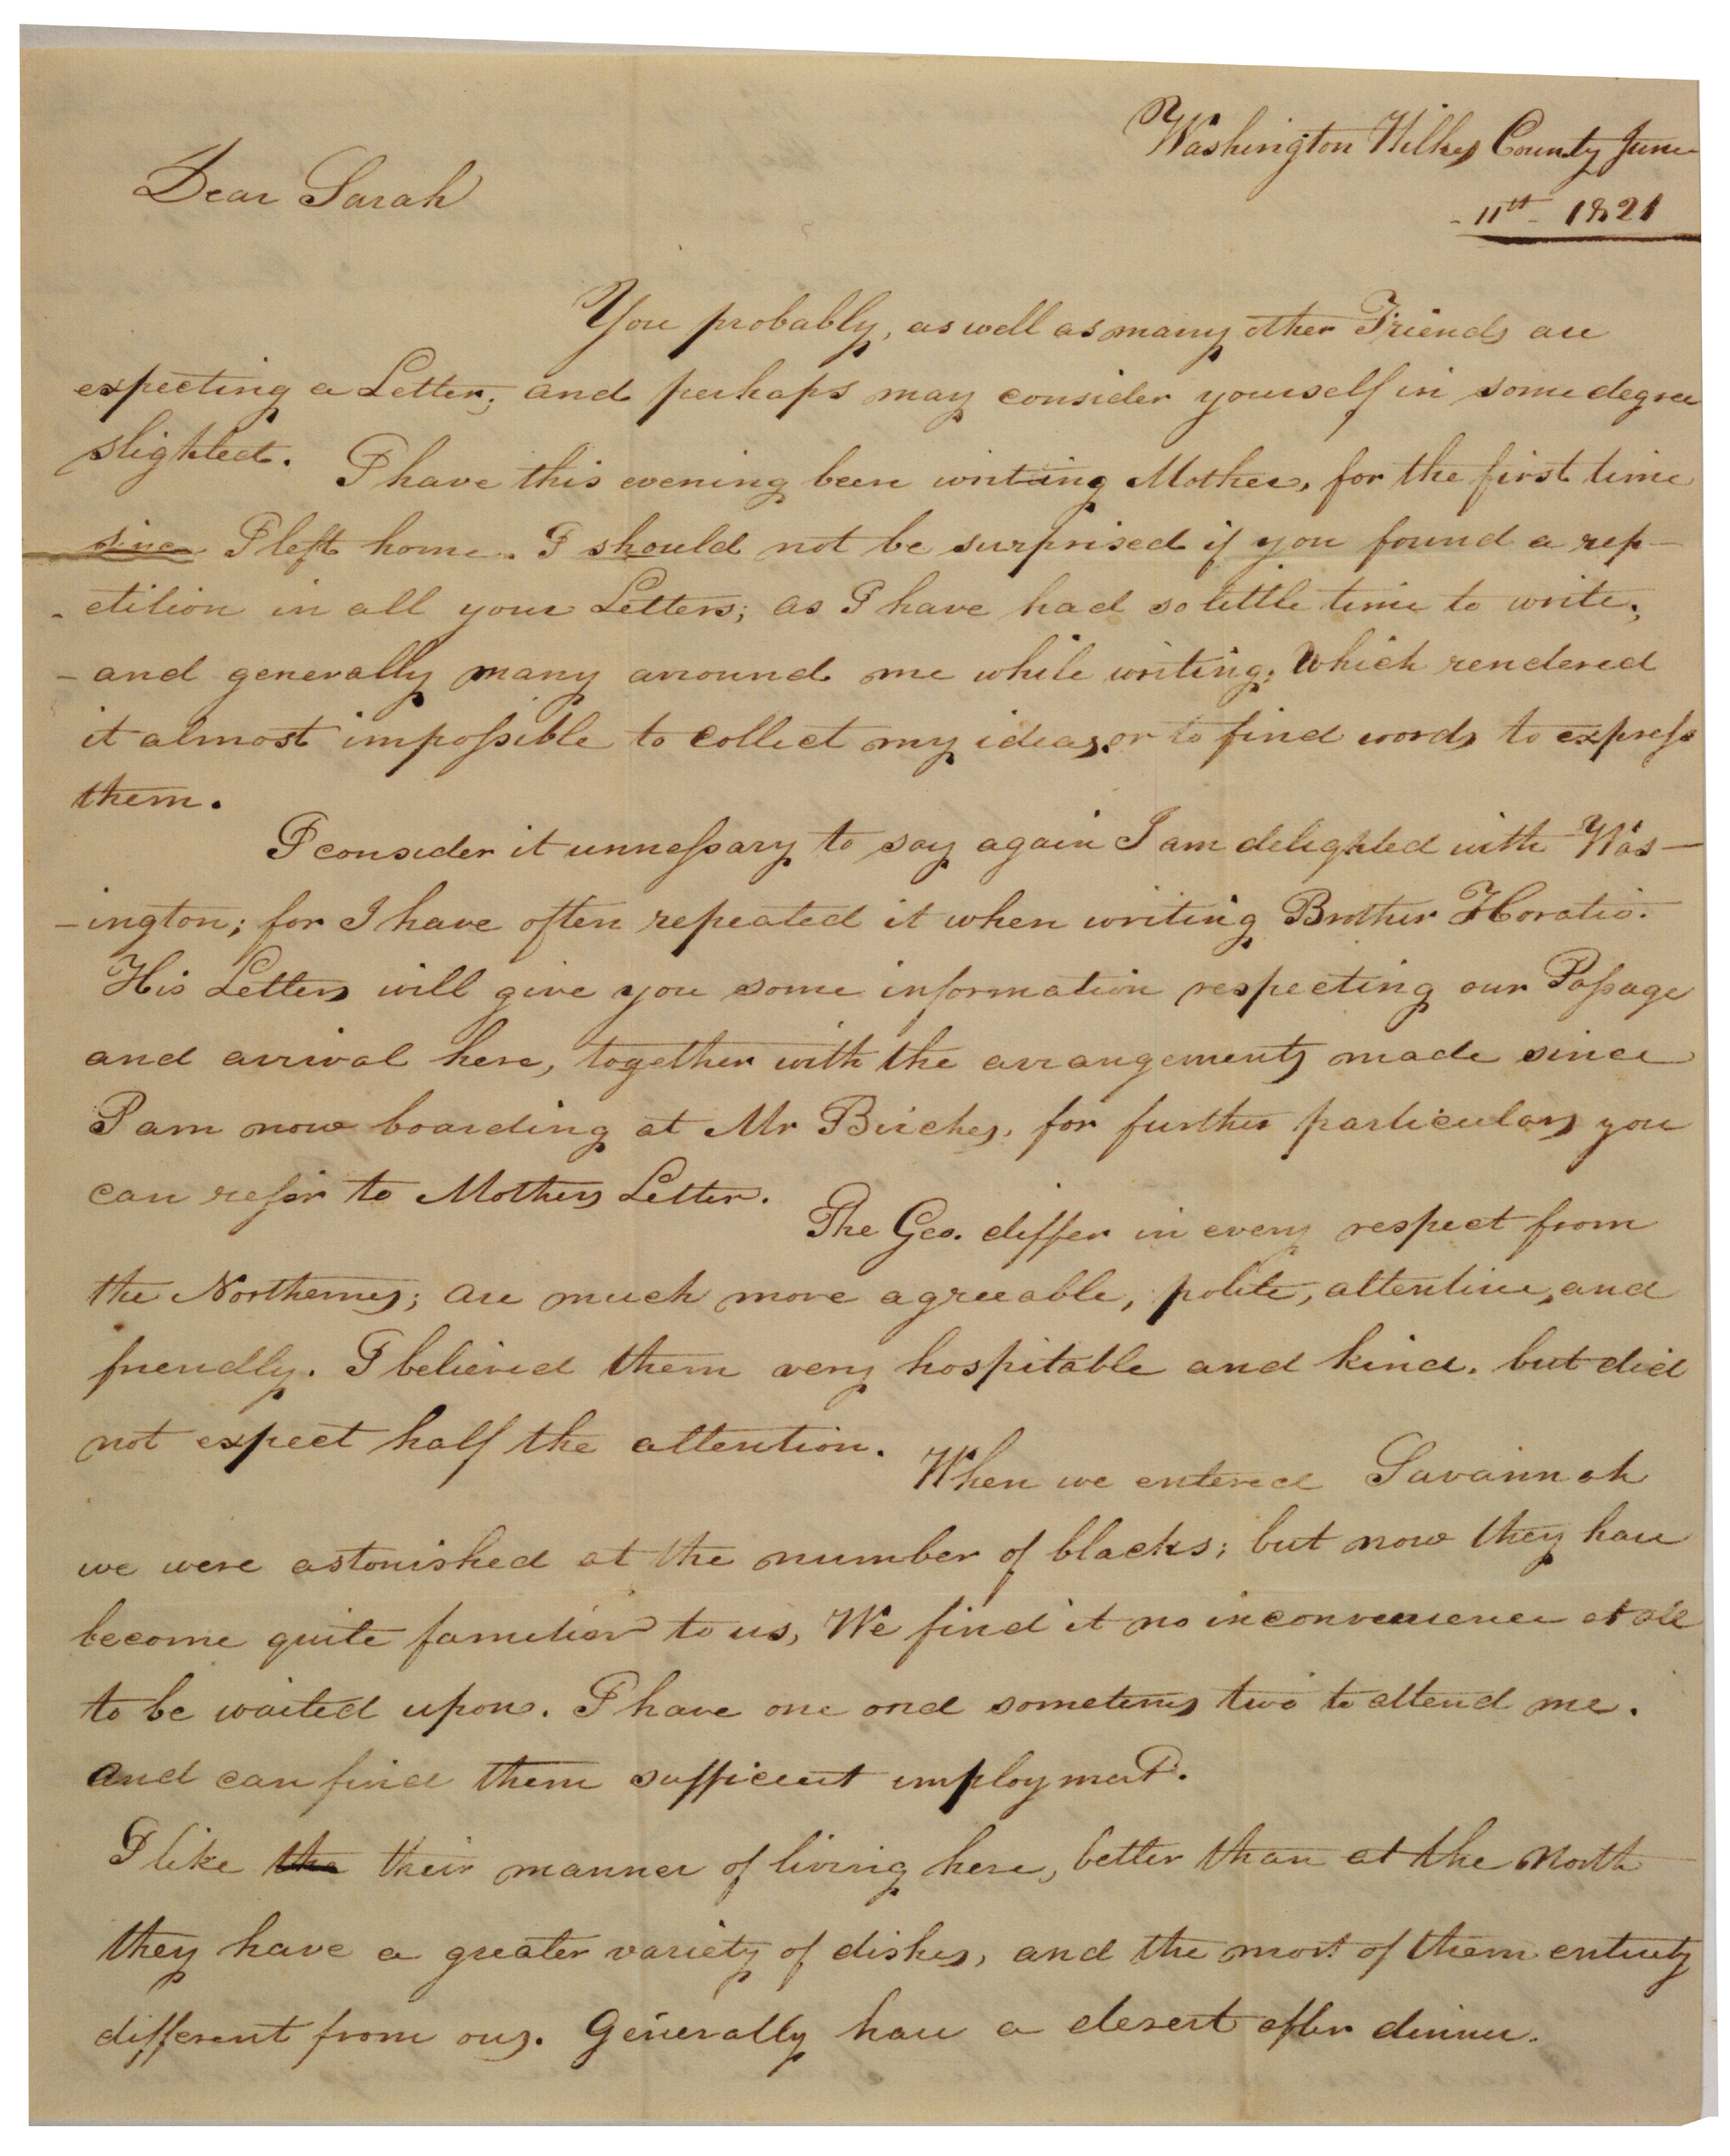 Washington Wilkes County June
- 11th - 1821
Dear Sarah
You probably, as well as many other Friends are
expecting a Letter; and perhaps may consider yourself in some degree
slighted. I have this evening been writing Mother, for the first time
since I left home. I should not be surprised if you found a rep-
- etition in all your Letters; as I have had so little time to write;
- and generally many arround me while writing; which rendered
it almost impossible to collect my ideas, or to find words to express
them.
I consider it unnessary to say again I am delighted with Was-
- ington; for I have often repeated it when writing Brother Horatio.
His Letters will give you some information respecting our Passage
and arrival here, together with the arrangements made since
I am now boarding at Mr Birches, for further particulars you
can refer to Mothers Letter. The Geo. differ in every respect from
the Northerners; are much more agreeable, polite, attentive, and
friendly. I believed them very hospitable and kind, but did
not expect half the attention. When we entered Savannah
we were astonished at the number of blacks; but now they have
become quite familiar to us, We find it no inconvenience at all
to be waited upon. I have one and sometimes two to attend me.
and can find them sufficient employment.
I like the their manner of living here, better than at the North
they have a greater variety of dishes, and the most of them entirely
different from ours. Generally have a desert after dinner.